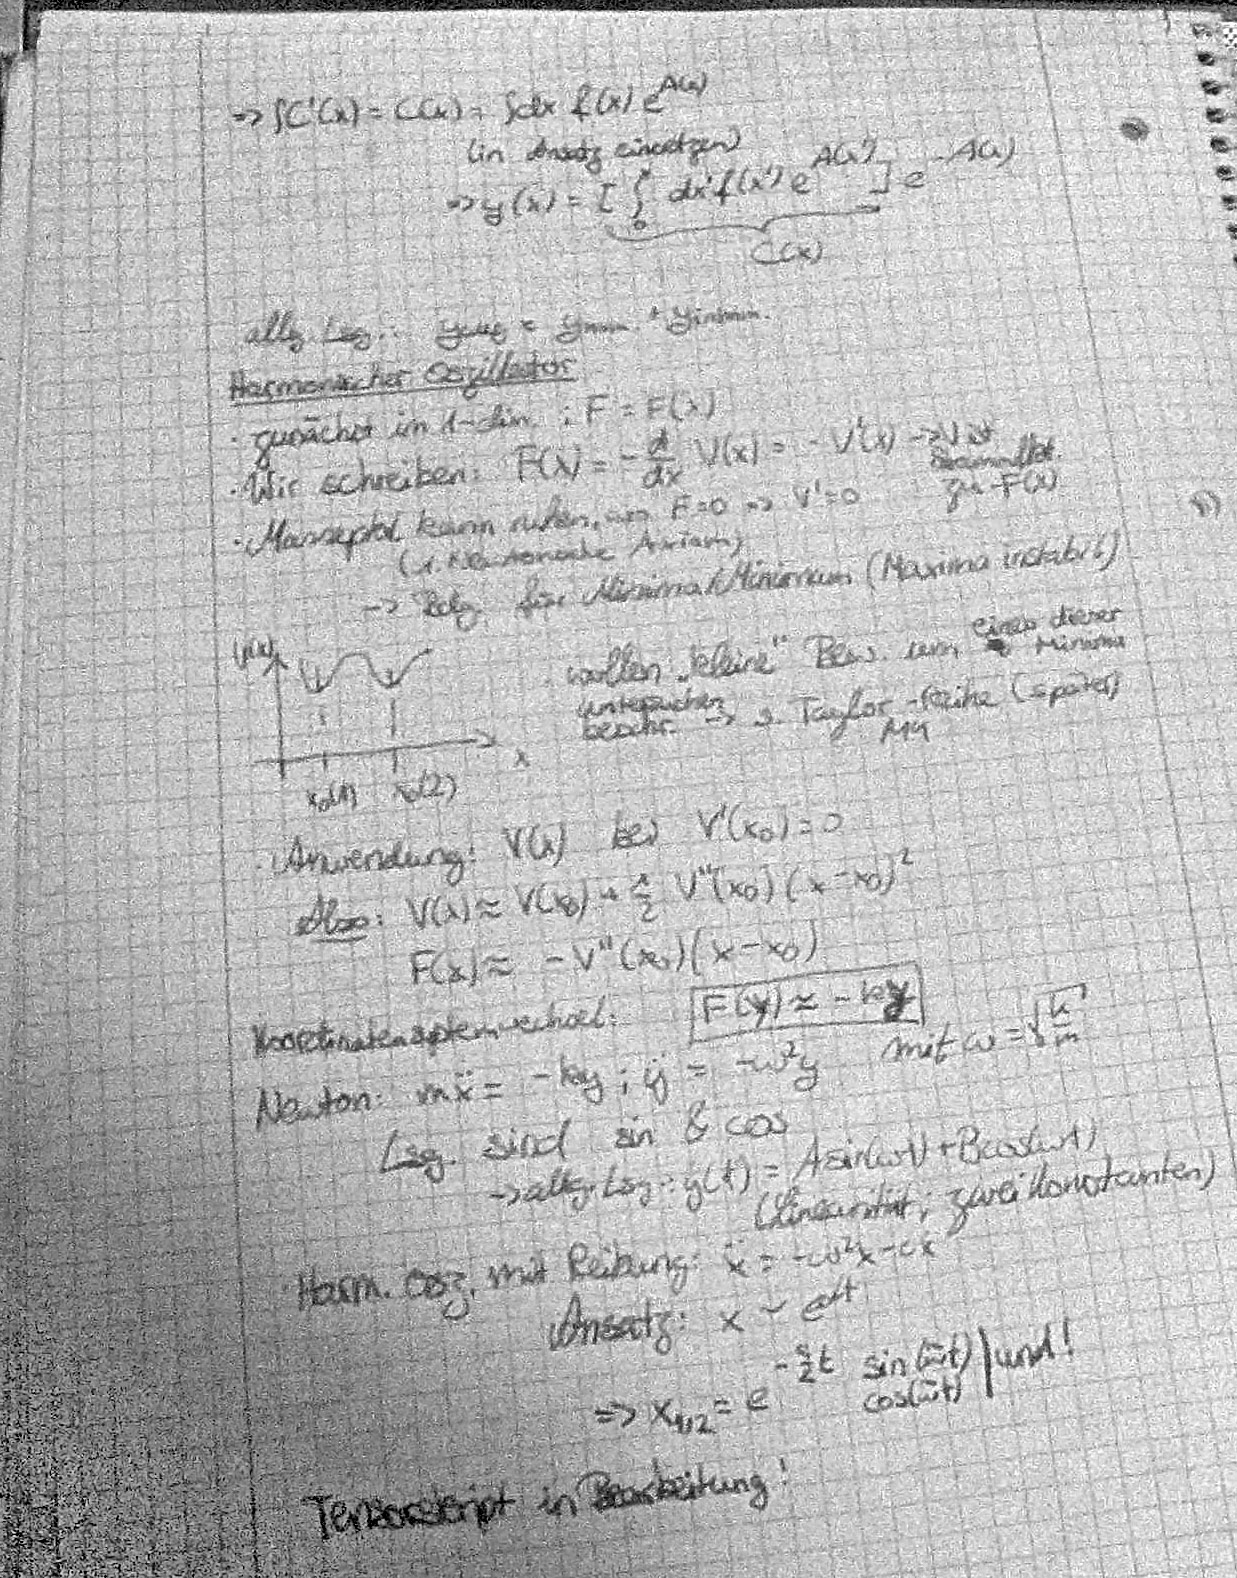 => ∫C'(x) = C(x) = ∫dx f(x) e^{A(x)}
(in Ansatz einsetzen)
=> y(x) = [∫_0^x dx' f(x') e^{A(x')}] e^{-A(x)}
C(x)
allg. Lsg.: y = y + y
Harmonischer Oszillator
· zunächst in 1-dim.: F = F(x)
· Wir schreiben: F(x) = -d/dx V(x) = -V'(x) -> V ist
zu F(x)
· Massepkt kann ruhen, wo F=0 => V'=0
(1. Newtonsche Axiom)
-> für Minima/Minimum (Maxima instabil)
V(x)
x
x0(1) x0(2)
· wollen "kleine" Bew. um eines dieser Minima
untersuchen
-> s. Taylor-Reihe (später)
· Anwendung: V(x) bei V'(x0) = 0
Also: V(x) ≈ V(x0) + 1/2 V''(x0)(x-x0)²
F(x) ≈ -V''(x0)(x-x0)
Koordinatensystemwechsel: F(y) ≈ -ky
Newton: mẍ = -ky; ÿ = -ω²y mit ω = √(k/m)
Lsg. sind sin & cos
-> allg. Lsg.: y(t) = A sin(ωt) + B cos(ωt)
(Linearität; zwei Konstanten)
· Harm. Osz. mit Reibung: ẍ = -ω²x - cẋ
Ansatz: x ~ e^{αt}
=> x_{1/2} = e^{-c/2 t} sin(ω̃t) | und!
cos(ω̃t)
Tensorskript in Bearbeitung!